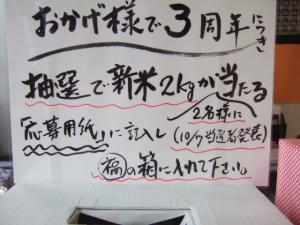 おかげ様で3周年につき
抽選で新米2kgが当たる
2名様に
「応募用紙」に記入し
(10/7当選者発表)
福の箱に入れて下さい。